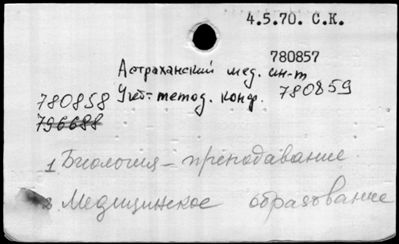 4.5.70. С.К.
780857
Астраханский мед. ин-т
780858 Учеб.-метод. конф. 780859
796688
1 Биология – преподавание
2. Медицинское образование